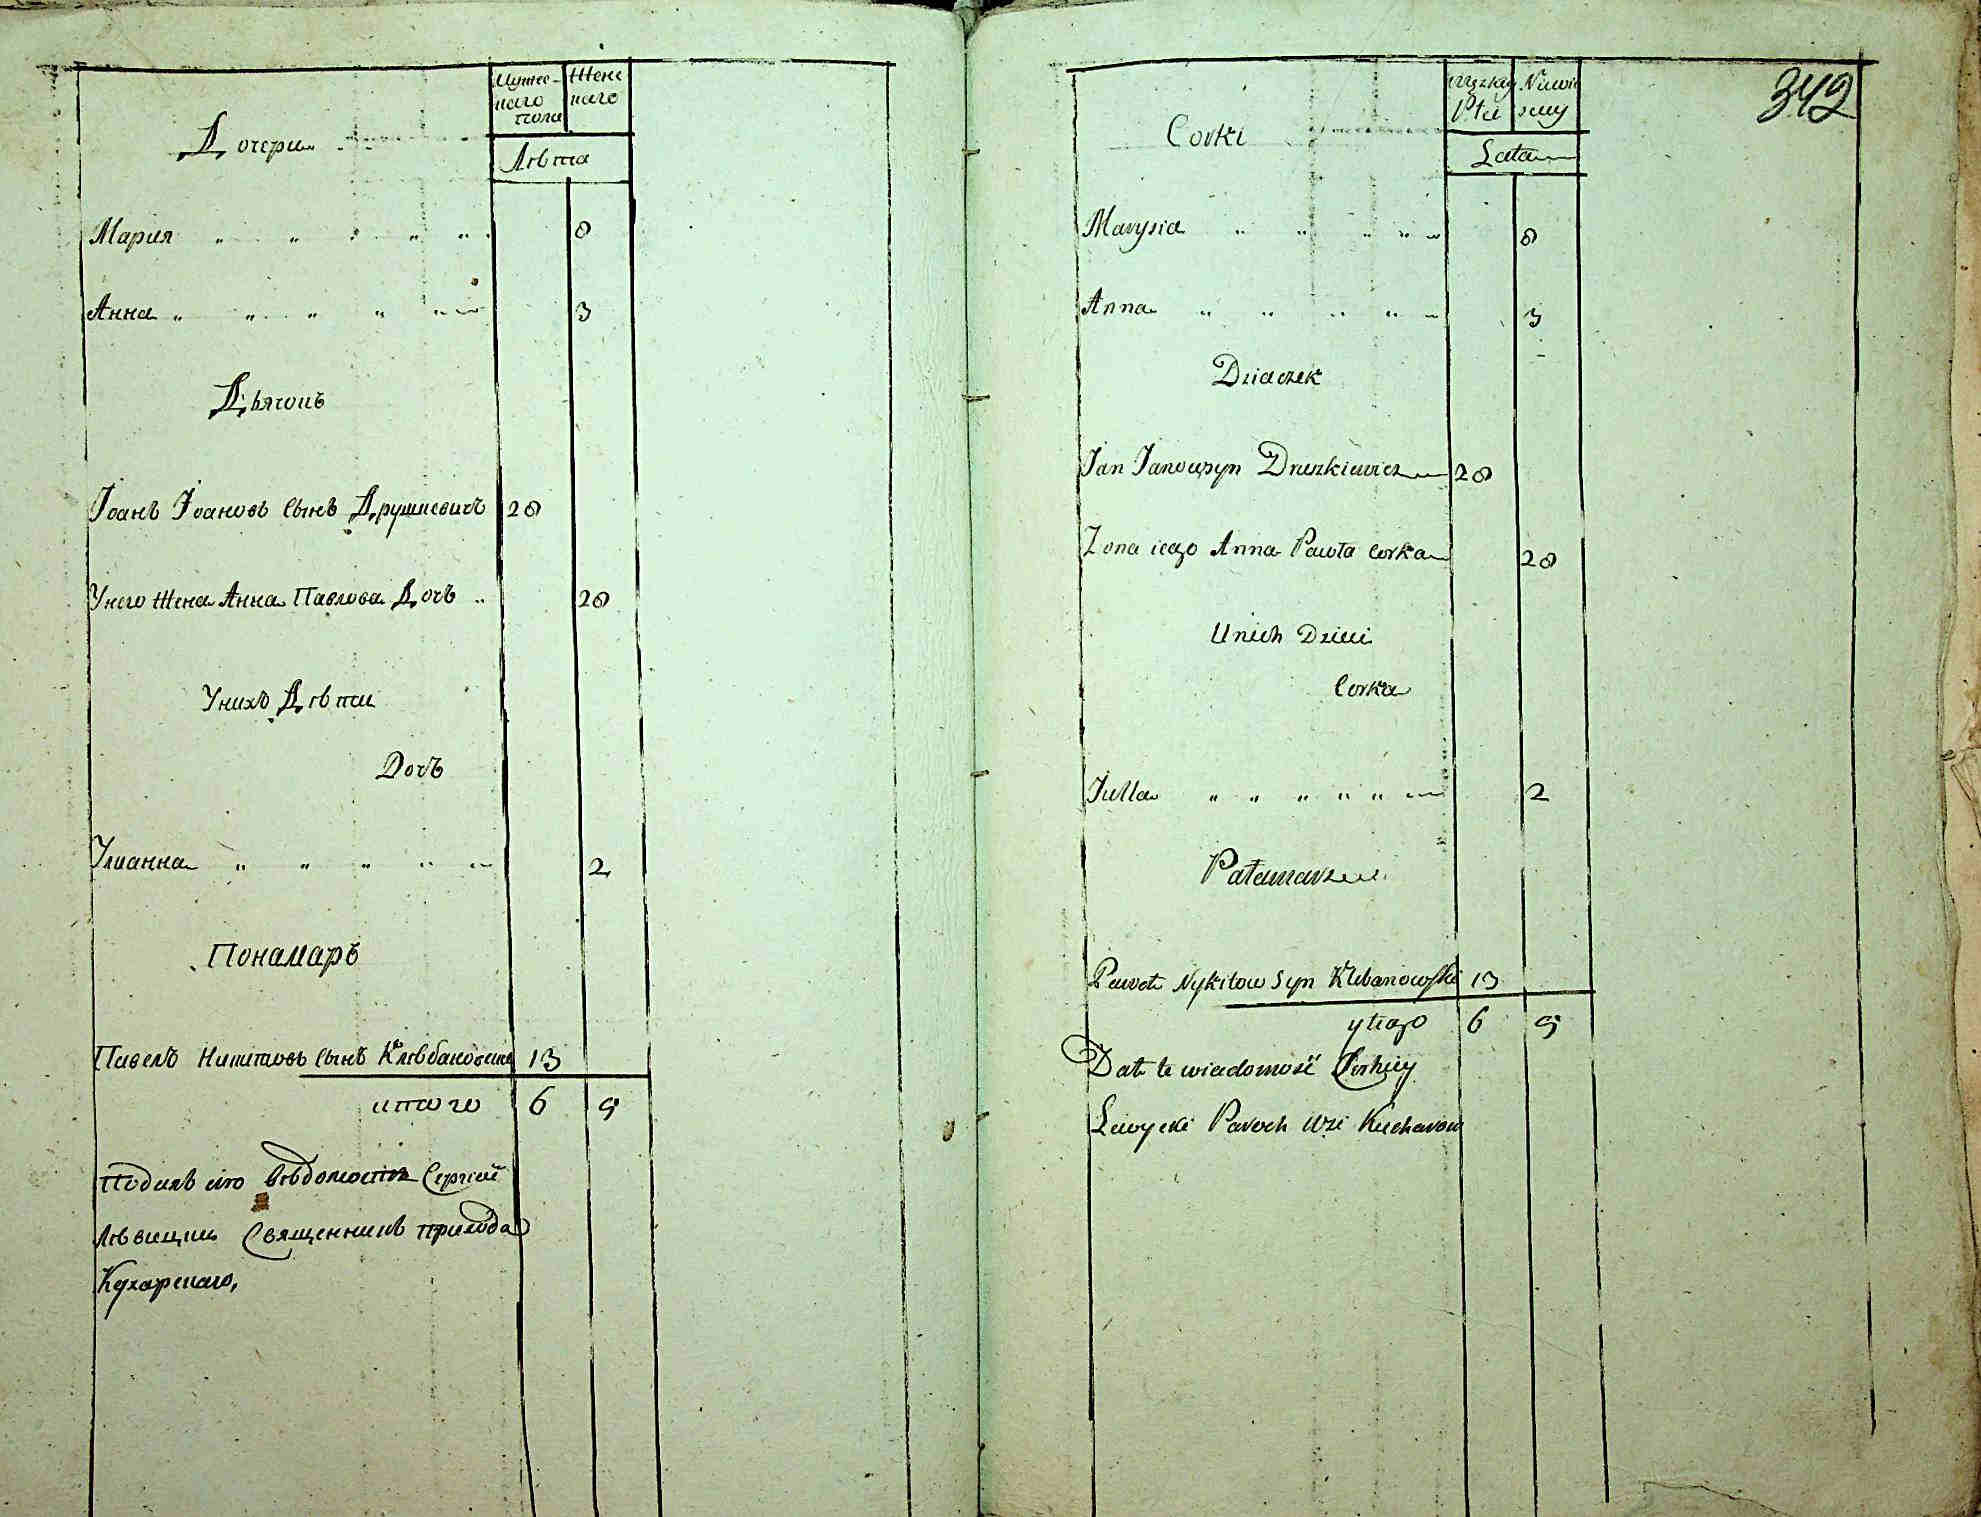 Дочери
Мужескаго пола
Женскаго
Лѣта
Мария 8
Анна 3
Дьячокъ
Іоанъ Іоановъ сынъ Друшкевичъ 28
Унего Жена Анна Павлова Дочъ 28
Унихъ Дѣти
Дочъ
Улианна 2
Понамаръ
Павелъ Никитовъ сынъ Клѣбановски 13
итого 6 9
Подалъ сию вѣдомость Сергий
Лѣвицки Священникъ прихода
Кухарскаго,
342
Corki
Lata
Marysia 8
Anna 3
Dziaczek
Jan Janow syn Druszkiewicz 28
Zona iego Anna Pawła Corka 28
Unich Dzieci
Corka
Julla 2
Pałamarz
Paweł Nykitow Syn Klebanowski 13
ytego 6 9
Dał te wiadomość Serhiy
Lewycki Paroch Wsi Kucharow